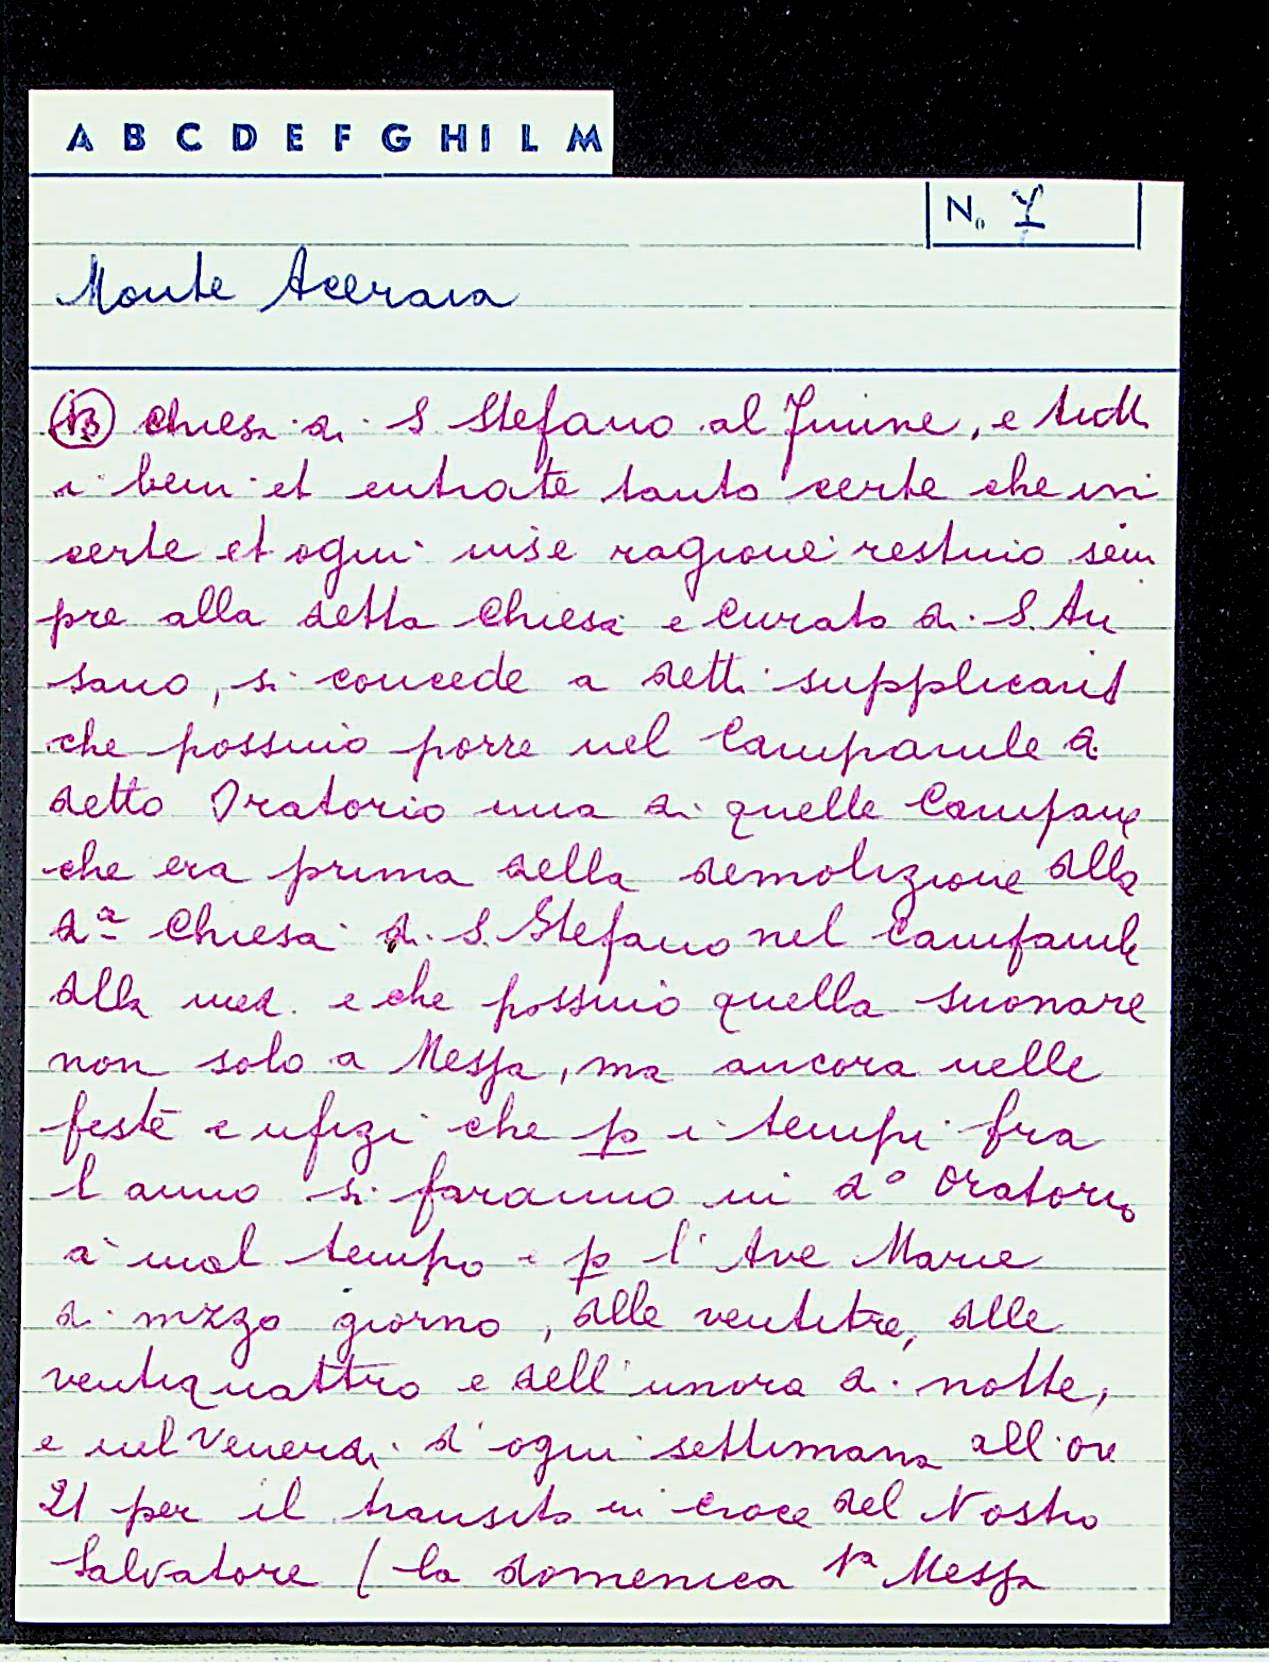 A B C D E F G H I L M
N.
Monte Aceraia
chiesa di S Stefano al Fiume, e tutti
i beni et entrate tanto certe che in
certe et ogni ragione restino sem
pre alla detta Chiesa e Curato di S. An
sano, si concede a detti supplicanti
che possino porre nel Campanile di
detto Oratorio una di quelle Campane
che era prima della demolizione della
dª Chiesa di S. Stefano nel Campanile
della med. e che possino quella suonare
non solo a Messa, ma ancora nelle
feste e ufizi che p i tempi fra
l anno si faranno in d° Oratorio
a mal tempo e p l'Ave Marie
di mezzo giorno, delle ventitre, delle
ventiquattro e dell'unora di notte,
e nel Venerdi d'ogni settimana all'ore
21 per il transito in croce del Nostro
Salvatore (la domenica 1ª Messa